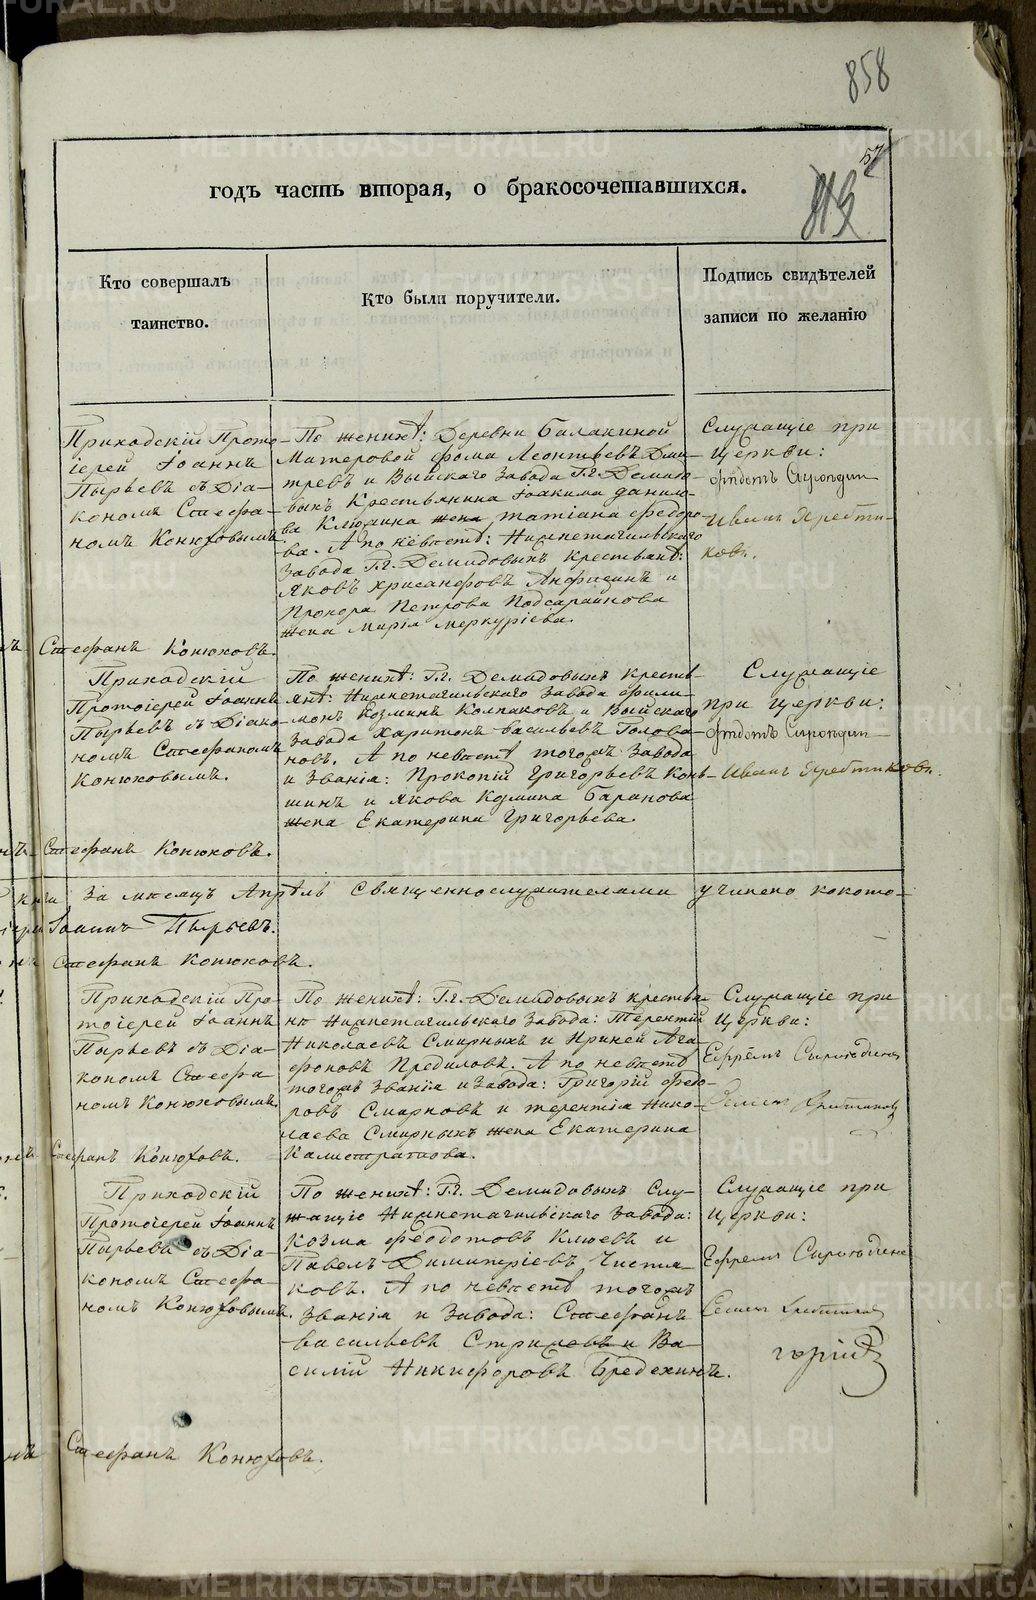 858
57
годъ часть вторая, о бракосочетавшихся.
Кто совершалъ
таинство.
Кто были поручители.
Подпись свидѣтелей
записи по желанію
Приходскій Прото-
іерей Іоаннъ
Пырьевъ съ Діа-
кономъ Стефа-
номъ Конюховымъ.
По женихѣ: Деревни Балакиной
Мастеровой Фома Леонтьевъ Дми-
тревъ и Выйскаго Завода Г.г. Демидо-
выхъ Крестьянина Іоакима Данило-
ва Клюкина жена Татіана Ѳедоро-
ва. А по невѣстѣ: Нижнетагильскаго
Завода Г.г. Демидовыхъ Крестьянѣ:
Яковъ Хрисанфовъ Анфицинъ и
Прохора Петрова Подсарайнова
жена Марія Меркуріева.
Служащіе при
Церкви:
Иванъ Хребти-
ковъ.
Стефанъ Конюховъ.
Приходскій
Протоіерей Іоаннъ
Пырьевъ съ Діако-
номъ Стефаномъ
Конюховымъ.
По женихѣ: Г.г. Демидовыхъ кресть-
янѣ: Нижнетагильскаго Завода Фили-
монъ Козминъ Колпаковъ и Выйскаго
Завода Харитонъ Васильевъ Голова-
новъ. А по невѣстѣ тогожъ Завода
и Званія: Прокопій Григорьевъ Конь-
шинъ и Якова Козмина Баранова
жена Екатерина Григорьева.
Служащіе
при Церкви:
Иванъ Хребтиковъ.
Стефанъ Конюховъ.
За мѣсяцъ Апрѣль Священнослужителями учинено
Іоаннъ Пырьевъ.
Стефанъ Конюховъ.
Приходскій Про-
тоіерей Іоаннъ
Пырьевъ съ Діа-
кономъ Стефа-
номъ Конюховымъ.
По женихѣ: Г.г. Демидовыхъ крестья-
нѣ Нижнетагильскаго Завода: Терентій
Николаевъ Смирныхъ и Ириней Ага-
фоновъ Предиловъ. А по невѣстѣ
тогожъ Званія и Завода: Григорій Ѳедо-
ровъ Смирновъ и Терентія Нико-
лаева Смирныхъ жена Екатерина
Калистратова.
Служащіе при
Церкви:
Ефремъ
Стефанъ Конюховъ.
Приходскій
Протоіерей Іоаннъ
Пырьевъ съ Діа-
кономъ Стефа-
номъ Конюховымъ.
По женихѣ: Г.г. Демидовыхъ Слу-
жащіе Нижнетагильскаго Завода:
Козма Ѳедотовъ Клюевъ и
Павелъ Димитріевъ Чистя-
ковъ. А по невѣстѣ тогожъ
Званія и Завода: Стефанъ
Васильевъ и Ва-
силій Никифоровъ Бредехинъ.
Служащіе при
Церкви:
Ефремъ
Стефанъ Конюховъ.
METRIKI.GASO-URAL.RU